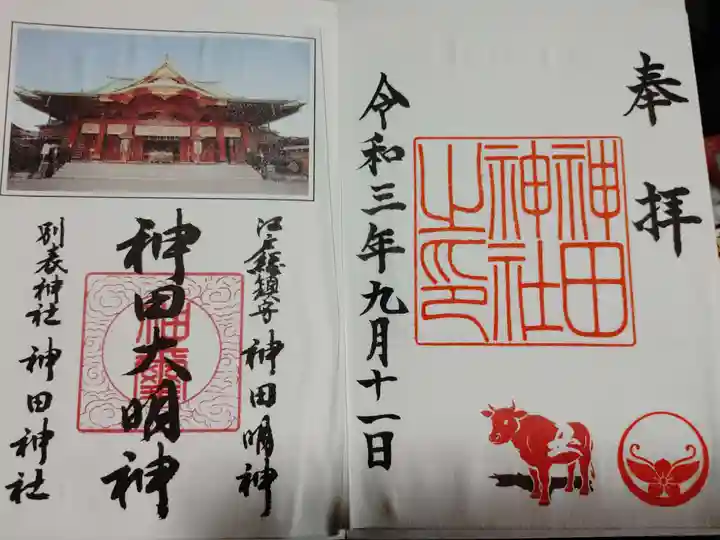 奉拝
神田
神社
之印
令和三年九月十一日
江戸總鎮守 神田明神
神田大明神
別表神社 神田神社